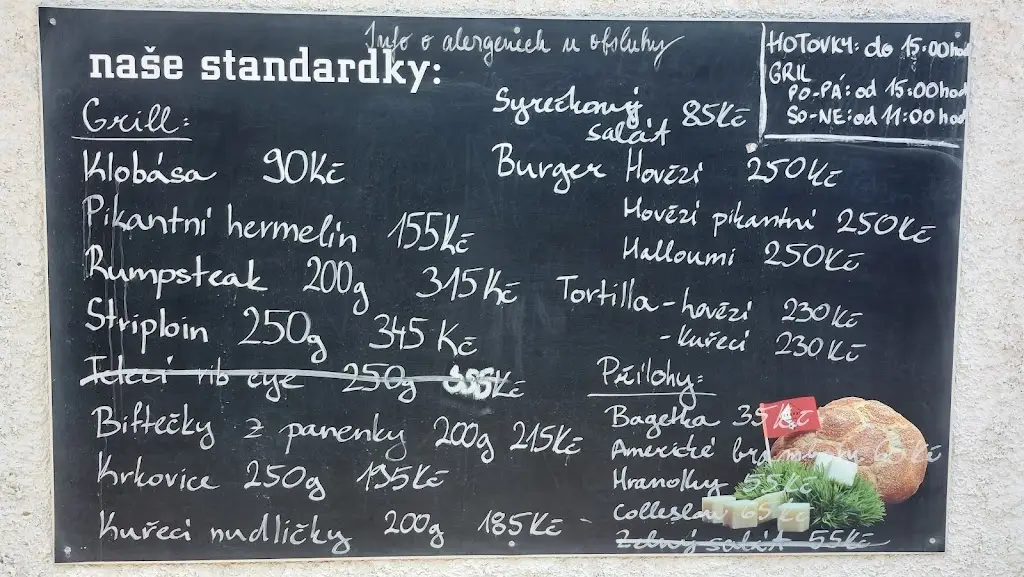 Info o alergenech u obsluhy
naše standardky:
HOTOVKY: do 15:00hod
GRIL
PO-PÁ: od 15:00hod
SO-NE: od 11:00hod
Grill:
Klobása 90Kč
Pikantní hermelín 155Kč
Rumpsteak 200g 315Kč
Striploin 250g 345 Kč
Telecí rib eye 250g Kč
Biftečky z panenky 200g 215Kč
Krkovice 250g 195Kč
Kuřecí nudličky 200g 185Kč -
Syrečkový salát 85Kč
Burger Hovězí 250Kč
Hovězí pikantní 250Kč
Halloumi 250Kč
Tortilla - hovězí 230Kč
- Kuřecí 230Kč
Přílohy:
Bagetka 35Kč
Americké brambory Kč
Hranolky 55Kč
Colleslaw 65Kč
Zelný salát 55Kč